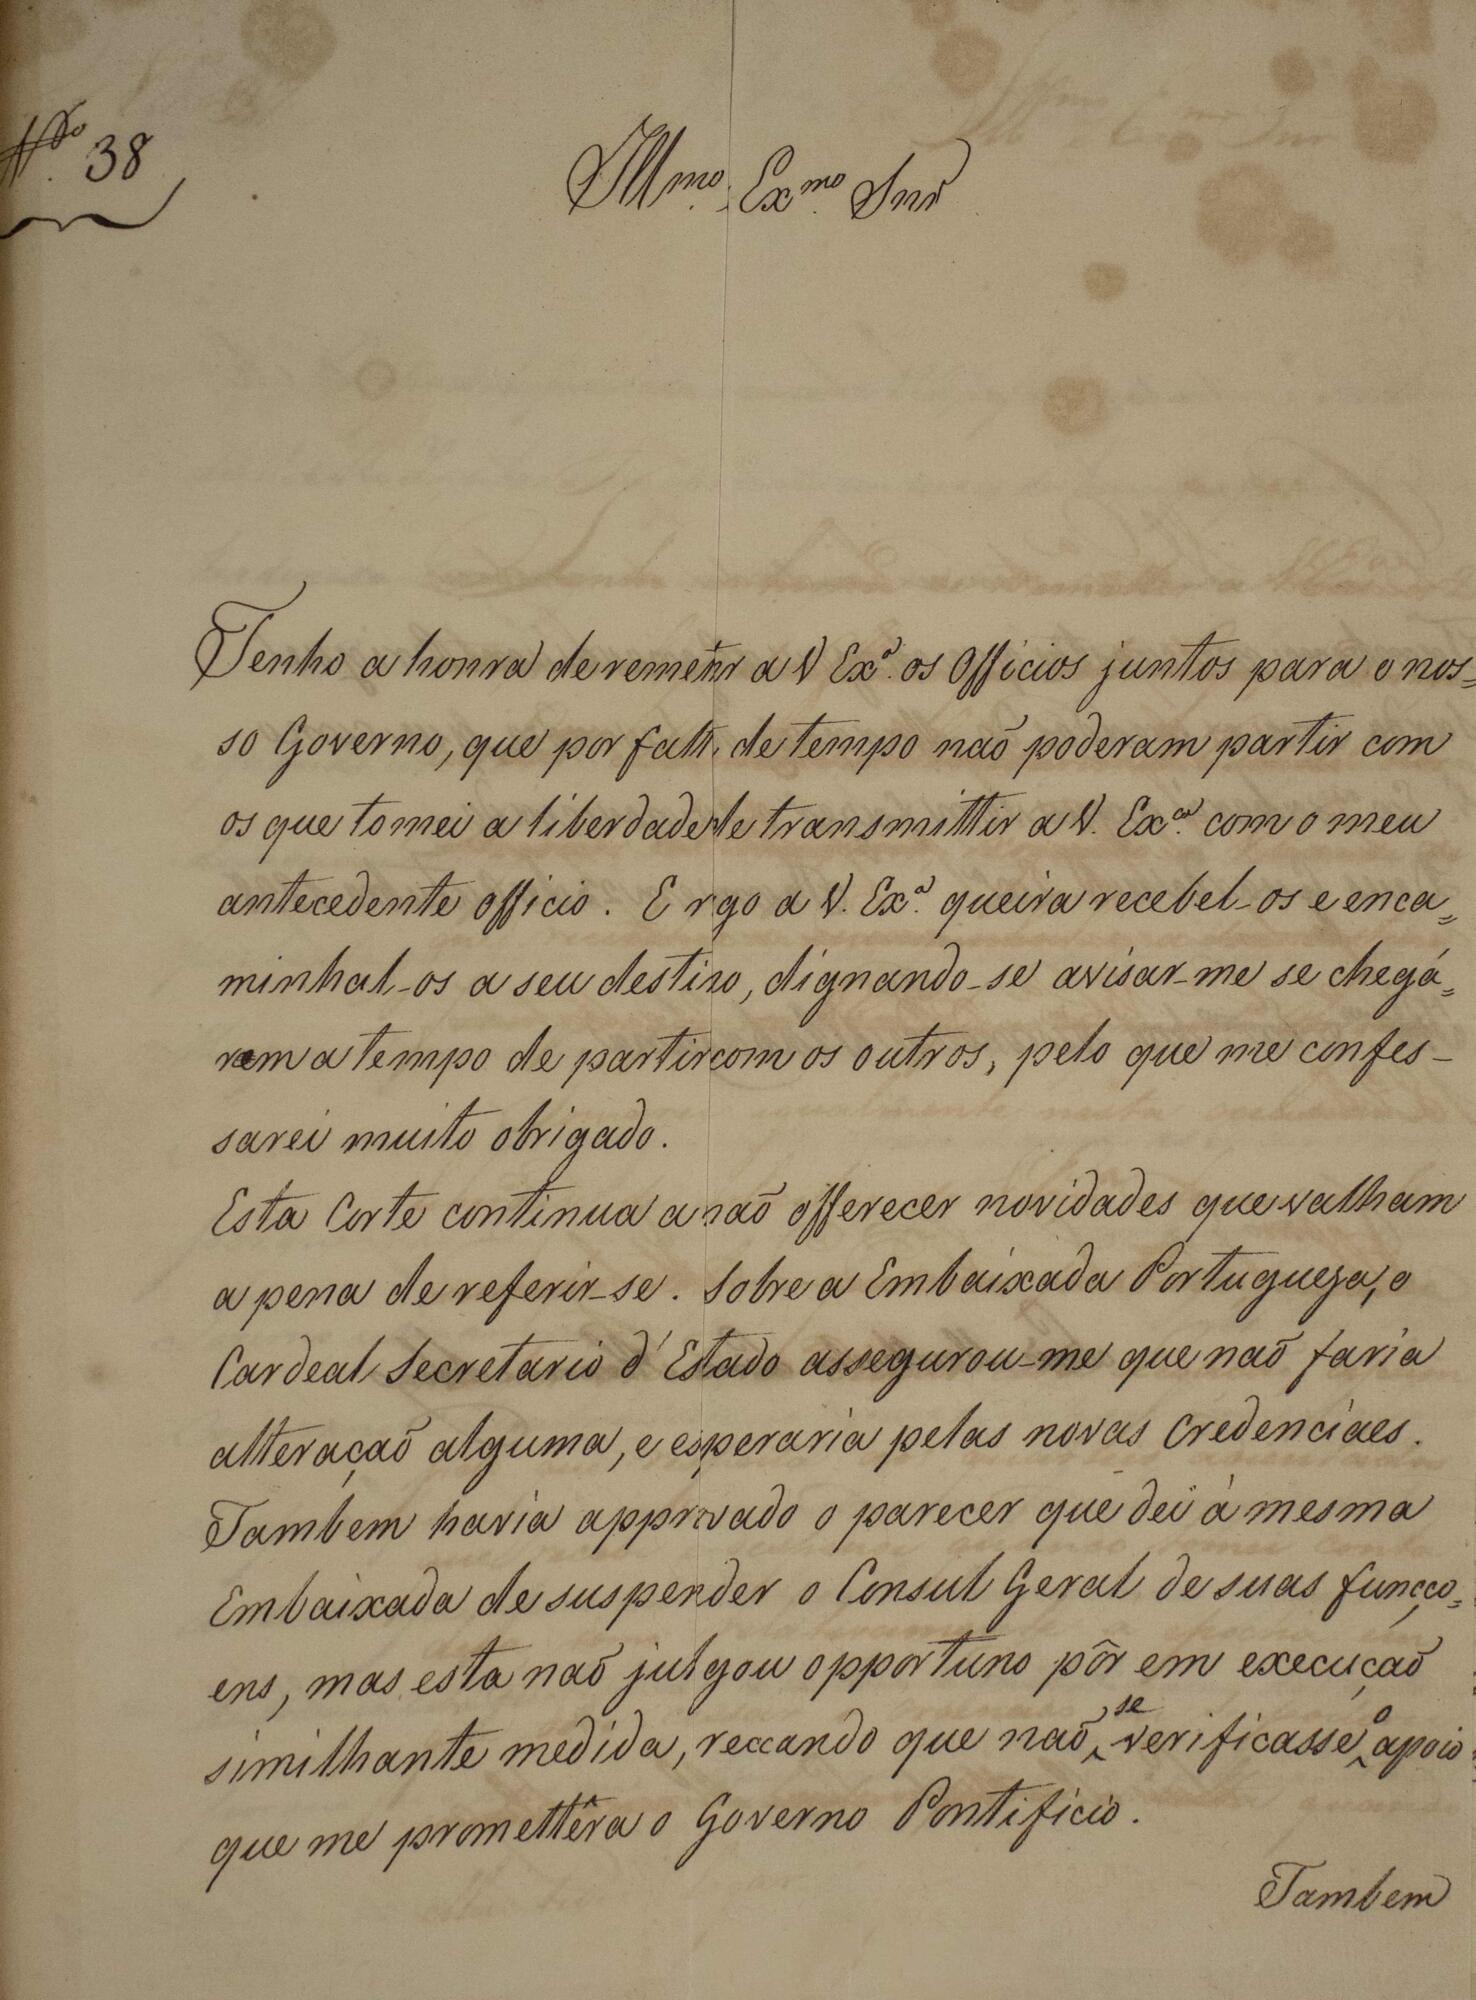 Nº 38
Illmo. Exmo. Snr
Tenho a honra de remeter a V Exª. os Officios juntos para o nos=
so Governo, que por falta de tempo naõ poderam partir com
os que tomei a liberdade de transmittir a V. Exca. com o meu
antecedente officio. E rogo a V. Exª. queira recebel-os e enca=
minhal-os a seu destino, dignando-se avisar-me se chegá=
ram a tempo de partir com os outros, pelo que me confes-
sarei muito obrigado.
Esta Corte continua a naõ offerecer novidades que valham
a pena de referir-se. Sobre a Embaixada Portugueza, o
Cardeal Secretario d'Estado assegurou-me que naõ faria
alteraçaõ alguma, e esperaria pelas novas Credenciaes.
Tambem havia approvado o parecer que dei á mesma
Embaixada de suspender o Consul Geral de suas funcço=
ens, mas esta naõ julgou opportuno pôr em execuçaõ
similhante medida, receando que naõ se verificasse o apoio
que me promettêra o Governo Pontificio.
Tambem